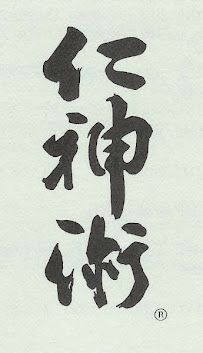 仁神術
®